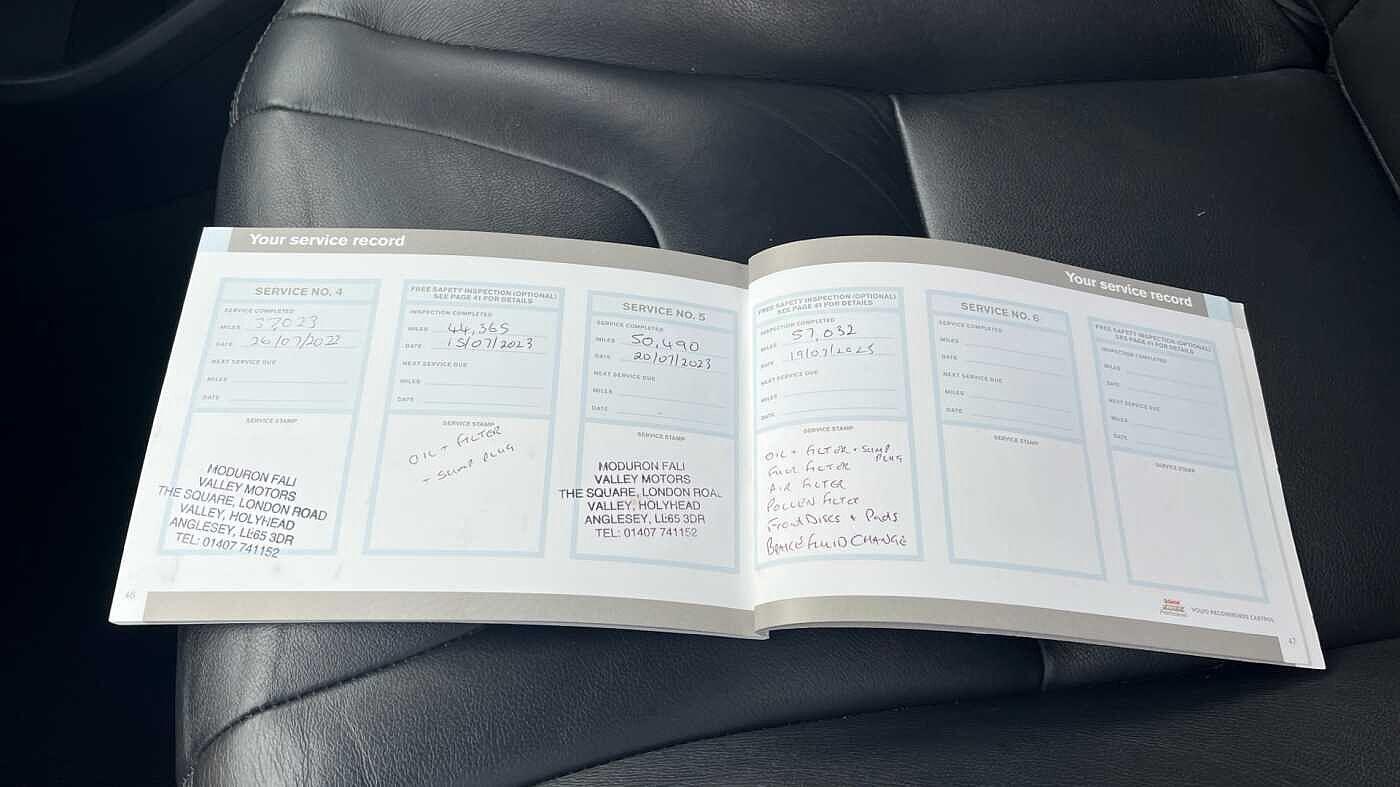 Your service record
SERVICE NO. 4
SERVICE COMPLETED
MILES 37023
DATE 20/07/2022
NEXT SERVICE DUE
MILES
DATE
SERVICE STAMP
MODURON FALI
VALLEY MOTORS
THE SQUARE, LONDON ROAD
VALLEY, HOLYHEAD
ANGLESEY, LL65 3DR
TEL: 01407 741152
46
FREE SAFETY INSPECTION (OPTIONAL)
SEE PAGE 41 FOR DETAILS
INSPECTION COMPLETED
MILES 44,365
DATE 15/07/2023
NEXT SERVICE DUE
MILES
DATE
SERVICE STAMP
OIL + FILTER
+ SUMP PLUG
SERVICE NO. 5
SERVICE COMPLETED
MILES 50,490
DATE 20/07/2023
NEXT SERVICE DUE
MILES
DATE
SERVICE STAMP
MODURON FALI
VALLEY MOTORS
THE SQUARE, LONDON ROA
VALLEY, HOLYHEAD
ANGLESEY, LL65 3DR
TEL: 01407 741152
Your service record
FREE SAFETY INSPECTION (OPTIONAL)
SEE PAGE 41 FOR DETAILS
INSPECTION COMPLETED
MILES 57,032
DATE 19/07/2023
NEXT SERVICE DUE
MILES
DATE
SERVICE STAMP
OIL + FILTER + SUMP
PLUG
FUEL FILTER
AIR FILTER
POLLEN FILTER
FRONT DISCS + PADS
BRAKE FLUID CHANGE
SERVICE NO. 6
SERVICE COMPLETED
MILES
DATE
NEXT SERVICE DUE
MILES
DATE
SERVICE STAMP
FREE SAFETY INSPECTION (OPTIONAL)
SEE PAGE 41 FOR DETAILS
INSPECTION COMPLETED
MILES
DATE
NEXT SERVICE DUE
MILES
DATE
SERVICE STAMP
VOLVO RECOMMENDS CASTROL
47